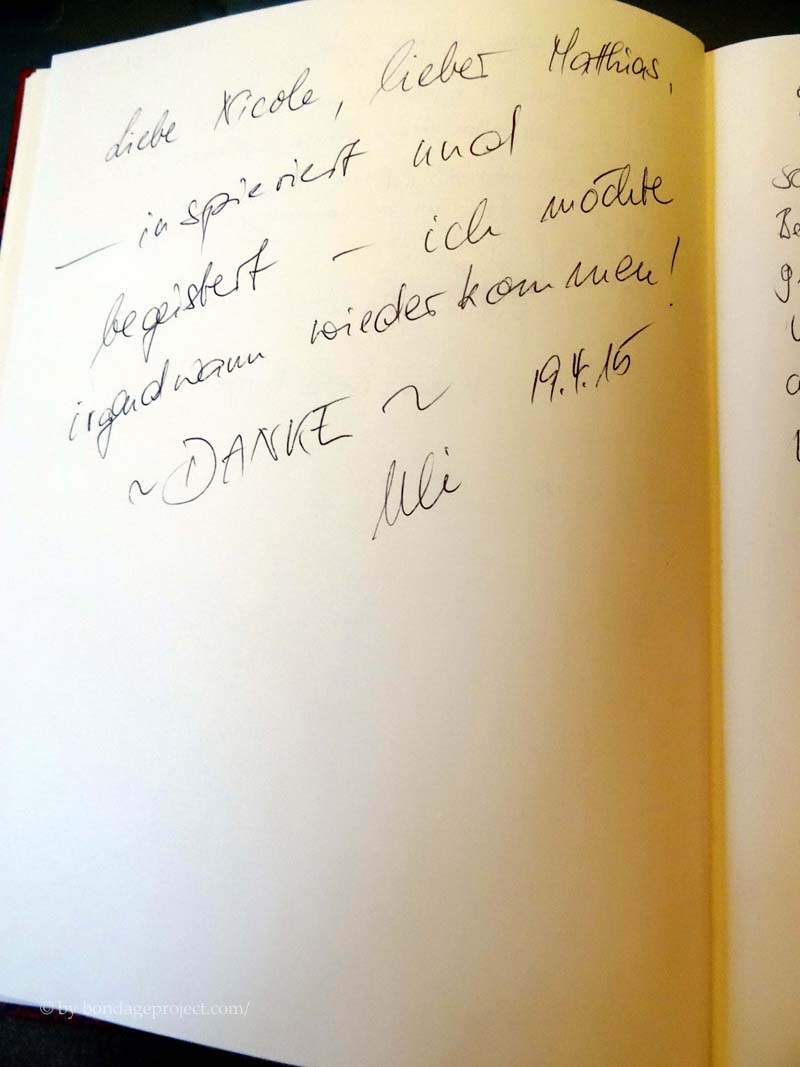 Liebe Nicole, lieber Matthias,
– inspieriert und
begeistert – ich möchte
irgendwann wiederkommen!
~ DANKE ~ 19.4.15
Uli
© by bondageproject.com/